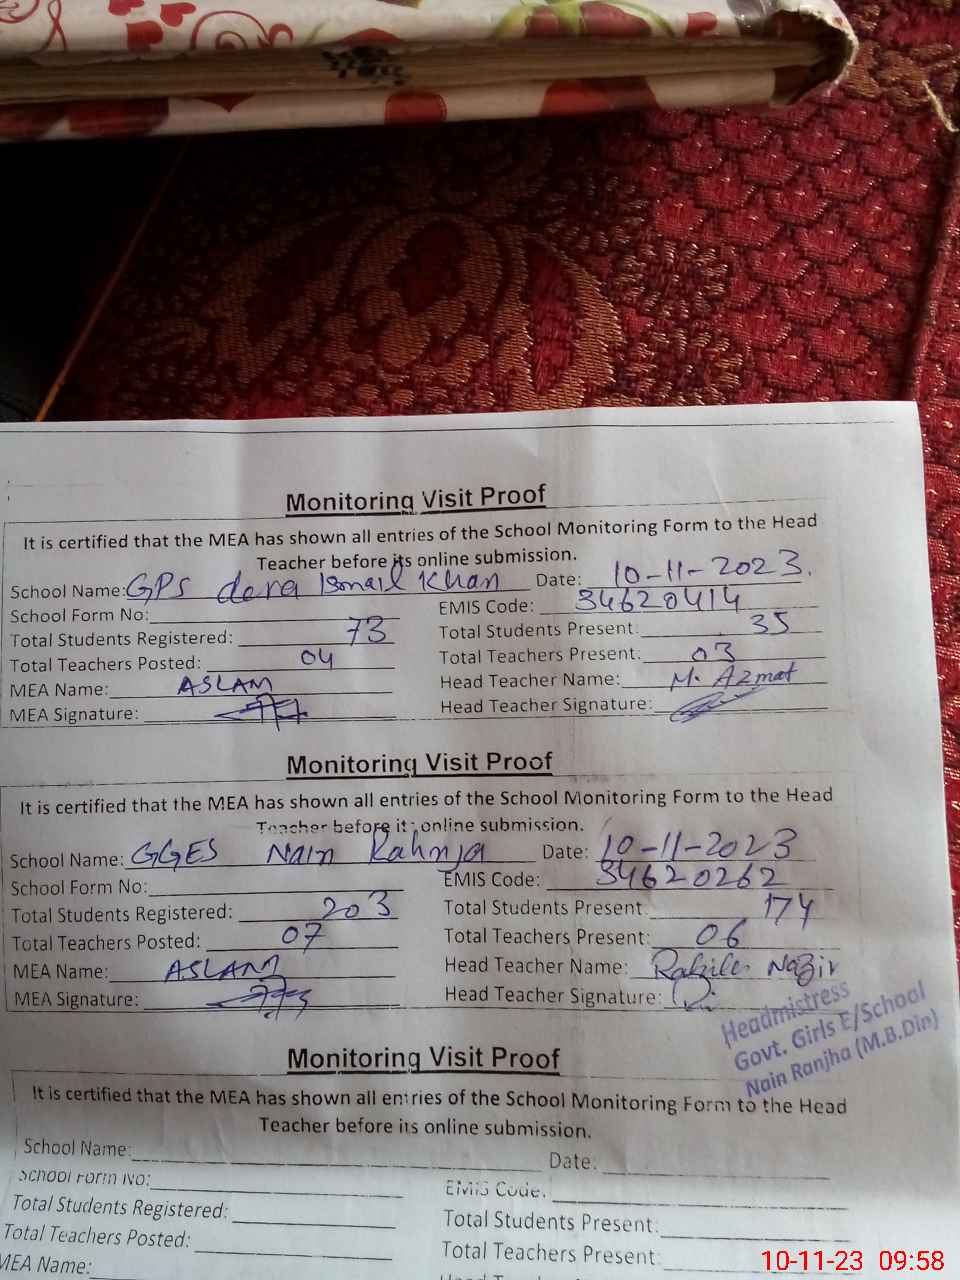 Monitoring Visit Proof
It is certified that the MEA has shown all entries of the School Monitoring Form to the Head
Teacher before its online submission.
School Name: GPS dera Ismail Khan Date: 10-11-2023.
School Form No: EMIS Code: 34620414
Total Students Registered: 73 Total Students Present: 35
Total Teachers Posted: 04 Total Teachers Present: 03
MEA Name: ASLAM Head Teacher Name: M. Azmat
MEA Signature: Head Teacher Signature:
Monitoring Visit Proof
It is certified that the MEA has shown all entries of the School Monitoring Form to the Head
Teacher before its online submission.
School Name: GGES Nain Rahnja Date: 10-11-2023
School Form No: EMIS Code: 34620262
Total Students Registered: 203 Total Students Present: 174
Total Teachers Posted: 07 Total Teachers Present: 06
MEA Name: ASLAM Head Teacher Name: Nazir
MEA Signature: Head Teacher Signature:
Headmistress
Govt. Girls E/School
Nain Ranjha (M.B.Din)
Monitoring Visit Proof
It is certified that the MEA has shown all entries of the School Monitoring Form to the Head
Teacher before its online submission.
School Name: Date:
School Form No: EMIS Code:
Total Students Registered: Total Students Present:
Total Teachers Posted: Total Teachers Present:
MEA Name:
10-11-23 09:58